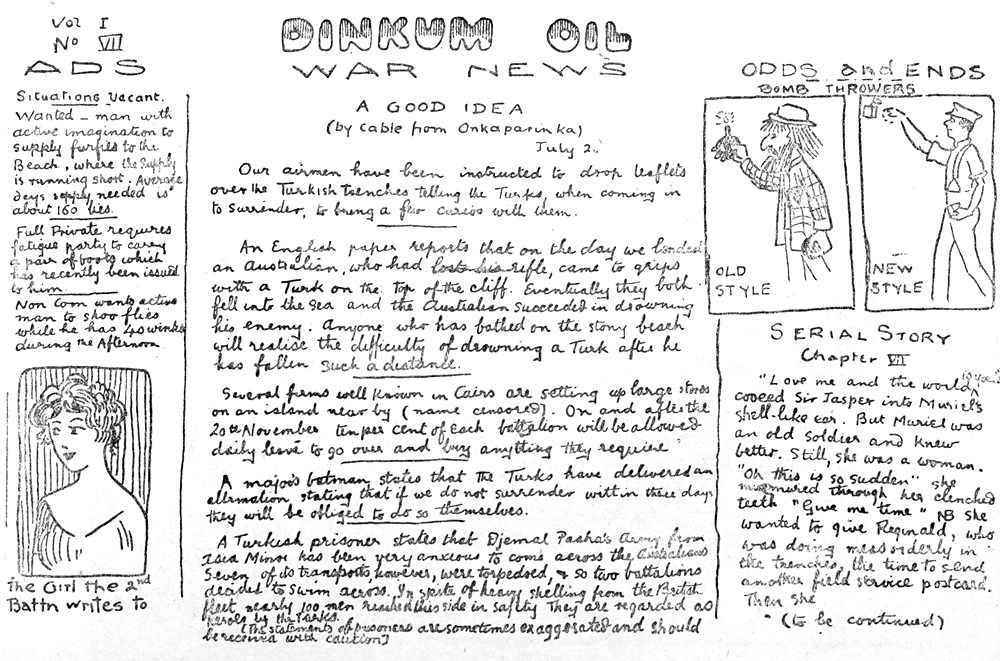 Vol I
No VII
ADS
Situations Vacant.
Wanted - man with
active imagination to
supply furfies to the
Beach, where the supply
is running short. Average
days supply needed is
about 160 lies.
Full Private requires
fatigue party to carry
a pair of boots which
has recently been issued
to him
Non Com wants active
man to shoo flies
while he has 40 winks
during the Afternoon
The Girl the 2nd
Battn writes to
DINKUM OIL
WAR NEWS
A GOOD IDEA
(by Cable from Onkaparinka)
July 2.
Our airmen have been instructed to drop leaflets
over the Turkish trenches telling the Turks, when coming in
to Surrender, to bring a few curios with them.
An English paper reports that on the day we landed
an Australian, who had lost his rifle, came to grips
with a Turk on the top of the cliff. Eventually they both
fell into the sea and the Australian succeeded in drowning
his enemy. Anyone who has bathed on the stony beach
will realise the difficulty of drowning a Turk after he
has fallen such a distance.
Several firms well known in Cairo are setting up large stores
on an island near by (name censored). On and after the
20th November ten per cent of each battalion will be allowed
daily leave to go over and buy anything they require
A major's batman states that the Turks have delivered an
ultimation stating that if we do not surrender within three days
they will be obliged to do so themselves.
A Turkish prisoner states that Djemal Pasha's Army from
Asia Minor has been very anxious to come across the
Seven of its transports, however, were torpedoed, & so two battalions
decided to swim across. In spite of heavy shelling from the British
fleet nearly 100 men reached this side in safety They are regarded as
heroes by the Turks.
(The statements of prisoners are sometimes exaggerated and should
be received with caution)
ODDS and ENDS
BOMB THROWERS
OLD
STYLE
NEW
STYLE
SERIAL STORY
Chapter VII
"Love me and the world is yours"
cooed Sir Jasper into Muriel's
shell-like ear. But Muriel was
an old soldier and knew
better. Still, she was a woman.
"Oh this is so sudden" she
murmured through her clenched
teeth "Give me time" NB She
wanted to give Reginald, who
was doing mess orderly in
the trenches, the time to send
another field service postcard.
Then she
(to be continued)